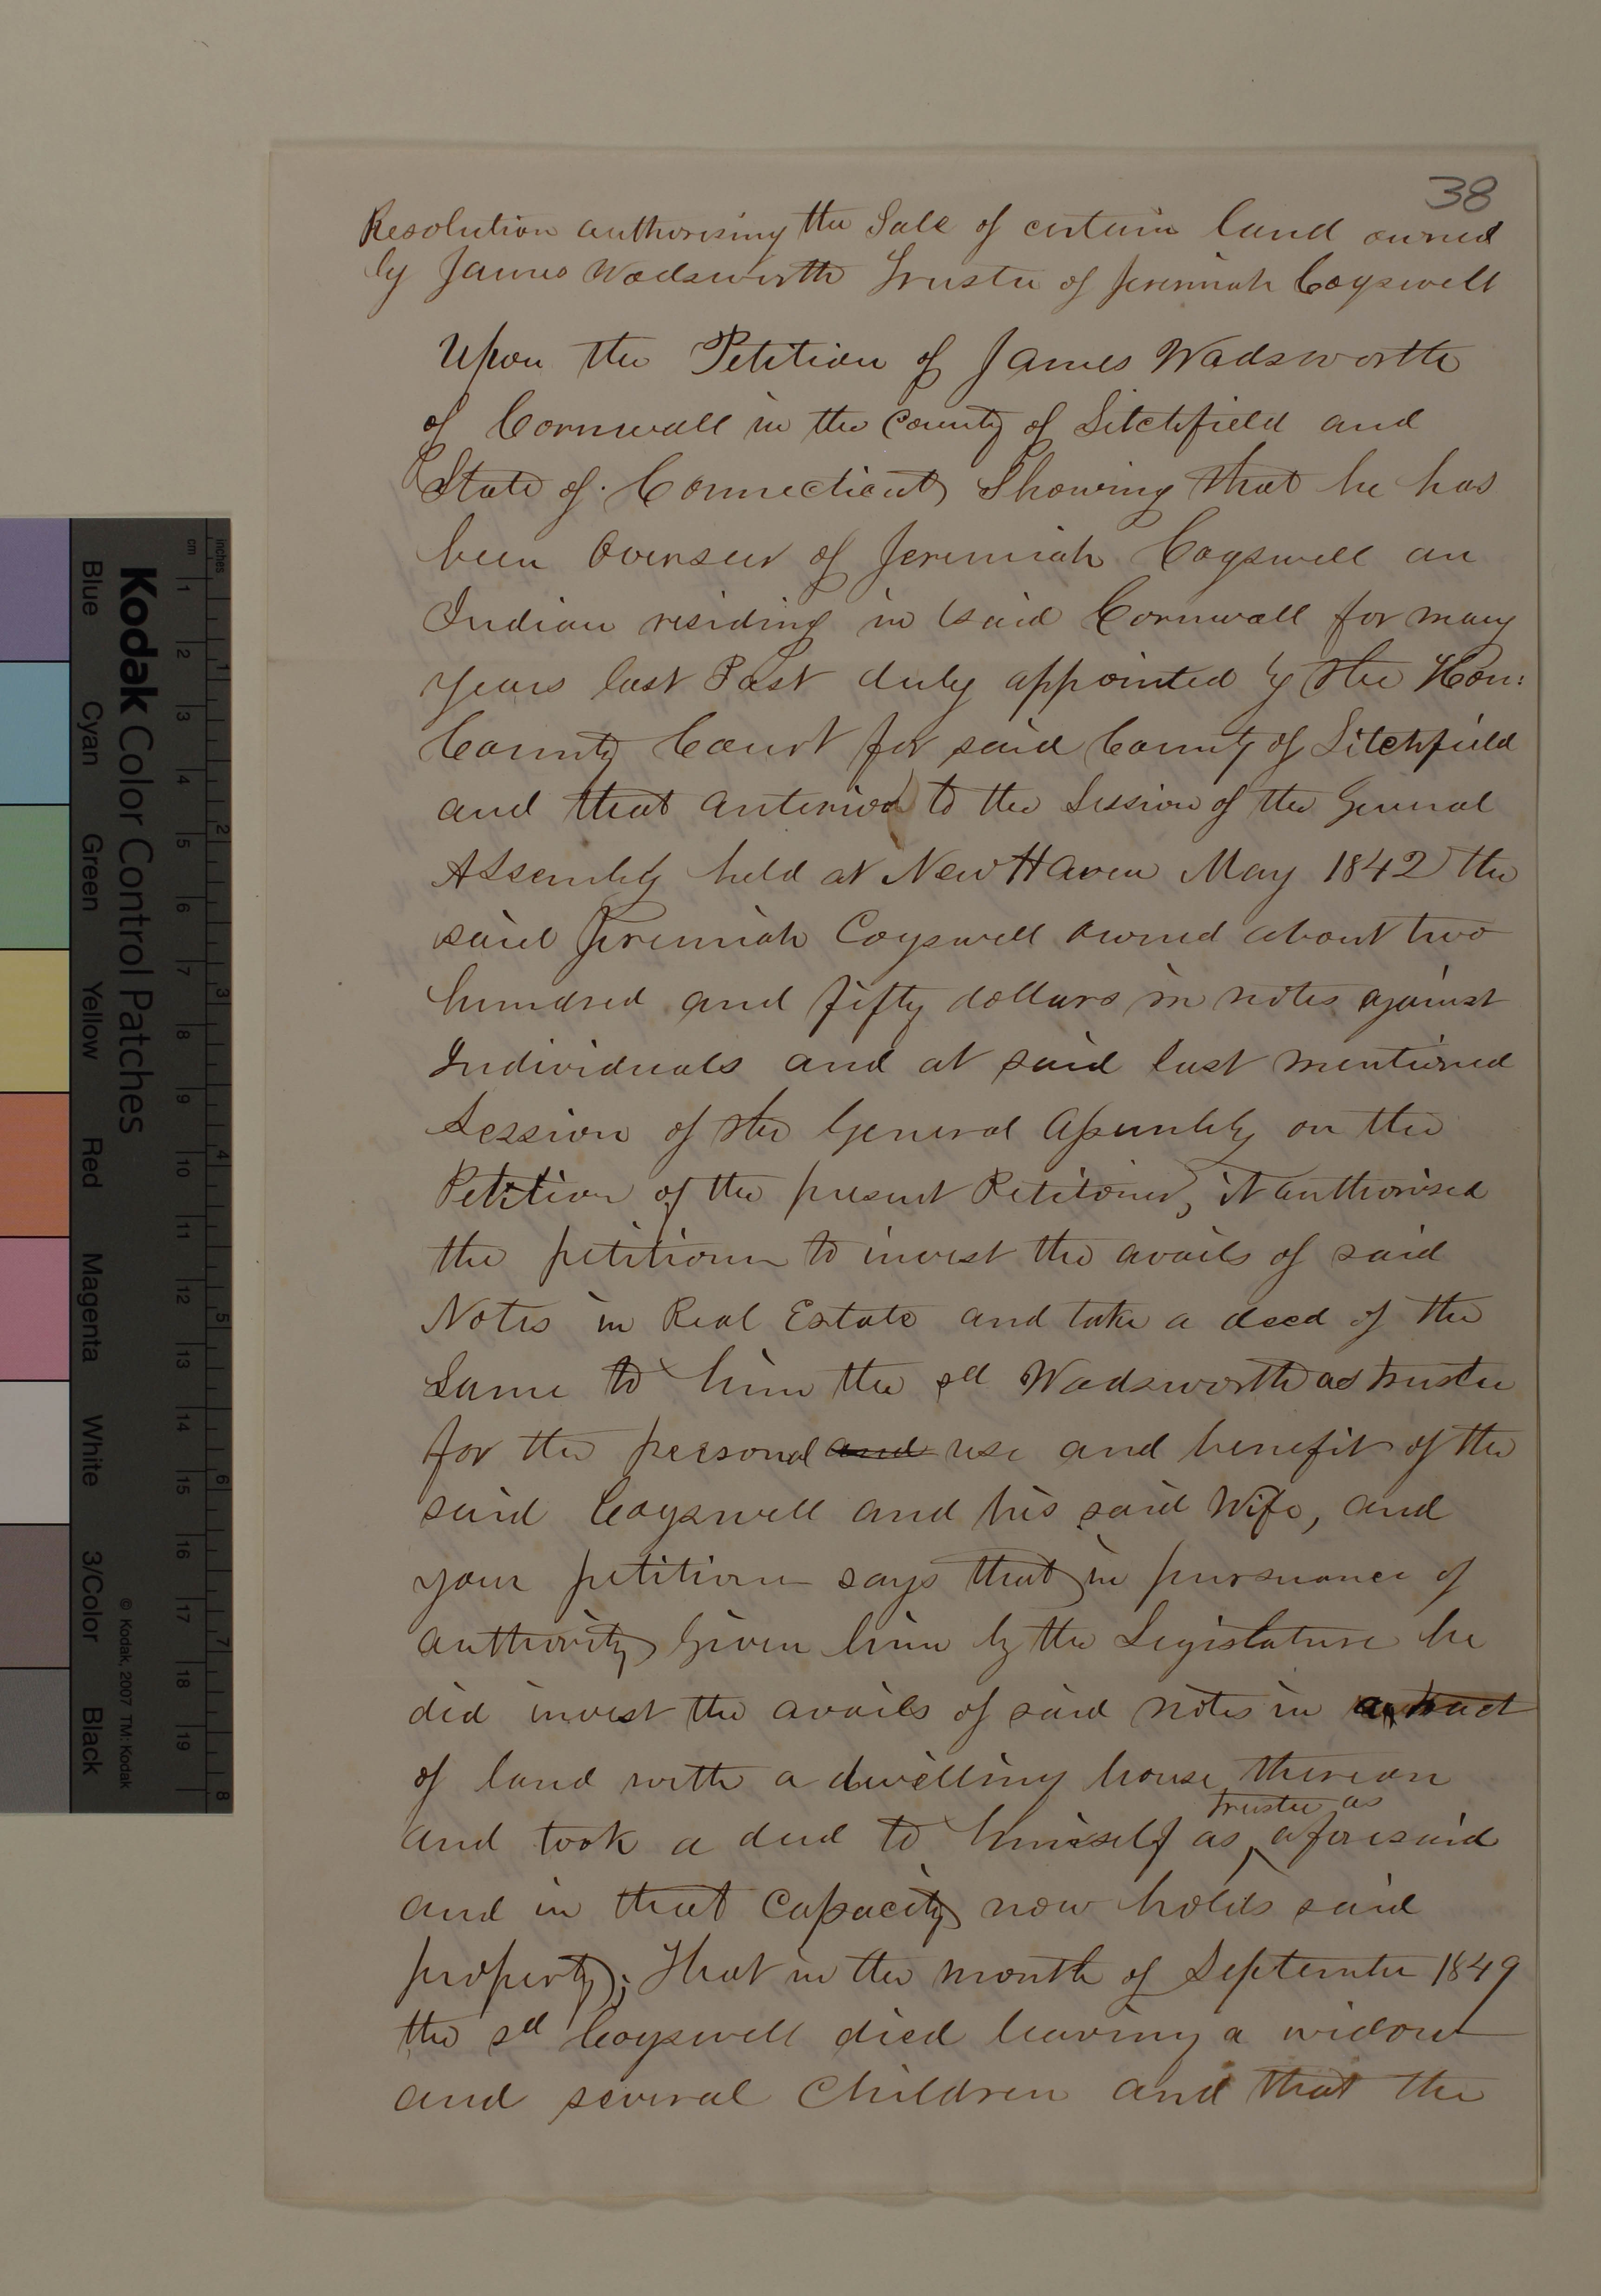 38
Resolution authorising the Sale of certain land owned
by James Wadsworth Trustee of Jeremiah Cogswell
Upon the Petition of James Wadsworth
of Cornwall in the County of Litchfield and
State of Connecticut Showing that he has
been Overseer of Jeremiah Cogswell an
Indian residing in said Cornwall for many
years last Past duly appointed by the Hon:
County Court for said County of Litchfield
and that anterior to the Session of the General
Assembly held at New Haven May 1842 the
said Jeremiah Cogswell owned about two
hundred and fifty dollars in notes against
Individuals and at said last mentioned
Session of the General Assembly on the
Petition of the present Petitioner, it authorised
the petitioner to invest the avails of said
Notes in Real Estate and take a deed of the
Same to him the sd Wadsworth as trustee
for the personal and use and benefit of the
said Cogswell and his said Wife, and
your petitioner says that in pursuance of
authority given him by the Legislature he
did invest the avails of said notes in a tract
of land with a dwelling house thereon
and took a deed to himself as trustee as aforesaid
and in that capacity now holds said
property; That in the month of September 1849
the sd Cogswell died leaving a widow
and several children and that the
Kodak Color Control Patches
Blue Cyan Green Yellow Red Magenta White 3/Color Black
© Kodak, 2007 TM: Kodak
inches 1 2 3 4 5 6 7 8
cm 1 2 3 4 5 6 7 8 9 10 11 12 13 14 15 16 17 18 19